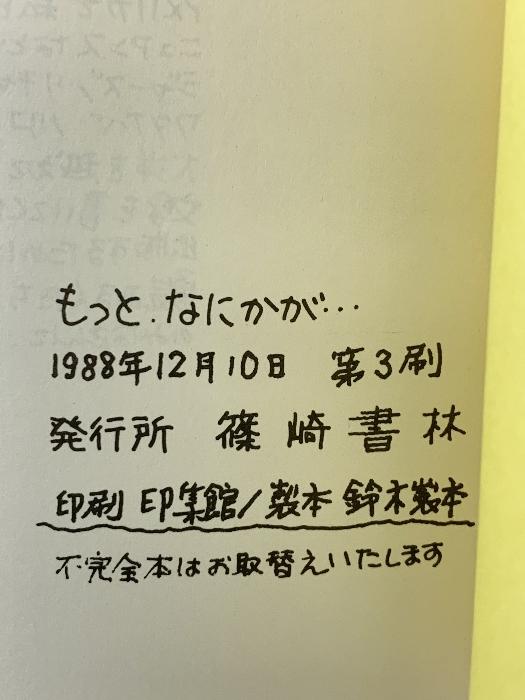 もっと.なにかが…
1988年12月10日 第3刷
発行所 篠崎書林
印刷 印集館/製本 鈴木製本
不完全本はお取替えいたします